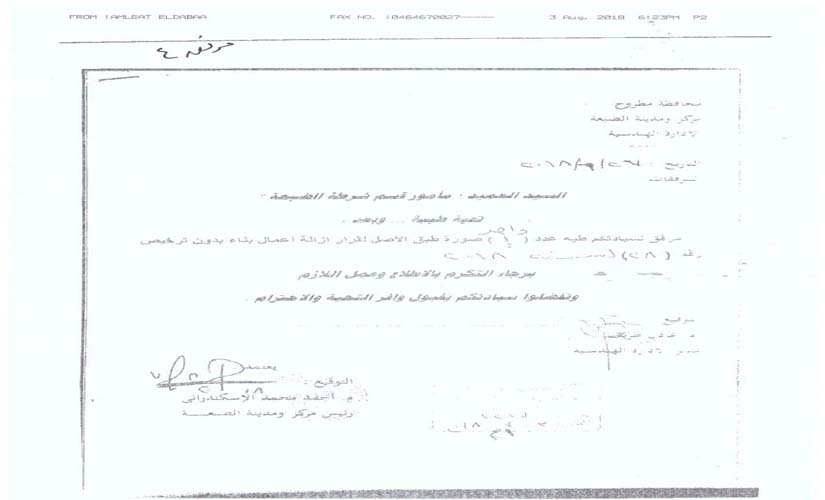 FROM :AMLEAT ELDABAA FAX NO. :0464670027 3 Aug. 2018 6:23PM P2
مرفق ٤
محافظة مطروح
مركز ومدينة الضبعة
الادارة الهندسية
التاريخ :
مرفقات
السيد العميد / مأمور قسم شرطة الضبعة
تحية طيبة ... وبعد ،
مرفق لسيادتكم طيه عدد ( ١ ) واحد صورة طبق الأصل لقرار ازالة اعمال بناء بدون ترخيص
رقم (٢٨) لسنة ٢٠١٨
برجاء التكرم بالاطلاع وعمل اللازم
وتفضلوا سيادتكم بقبول وافر التحية والاحترام .
مدير الادارة الهندسية
يعتمد
التوقيع :
م. احمد محمد الإسكندراني
رئيس مركز ومدينة الضبعة